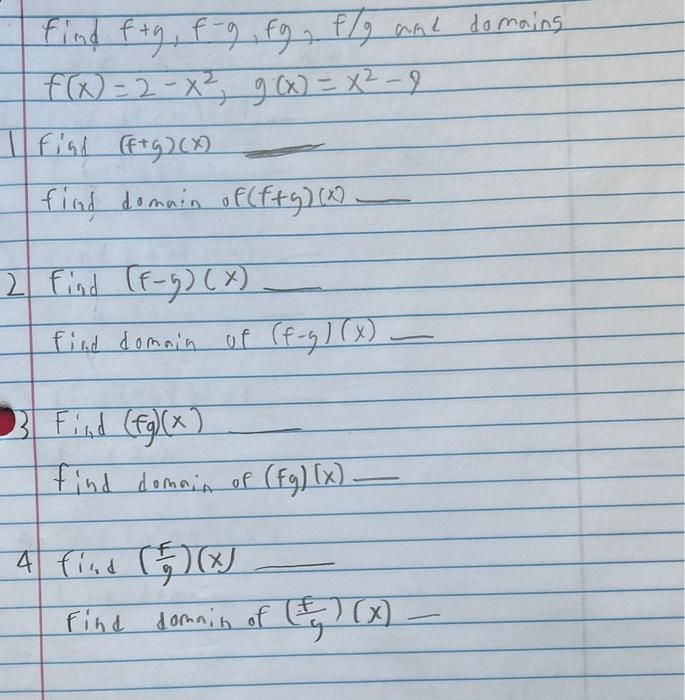 Find f+g, f-g, fg, f/g and domains
f(x) = 2 - x², g(x) = x² - 9
1 Find (f+g)(x) ___
find domain of (f+g)(x) ___
2 Find (f-g)(x) ___
Find domain of (f-g)(x) ___
3 Find (fg)(x) ___
find domain of (fg)(x) ___
4 find (f/g)(x) ___
Find domain of (f/g)(x) ___